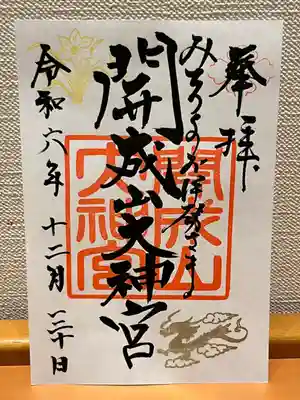 奉拝
みちのくお伊勢さま
開成山大神宮
開成山
大神宮
令和六年 十二月 三十日